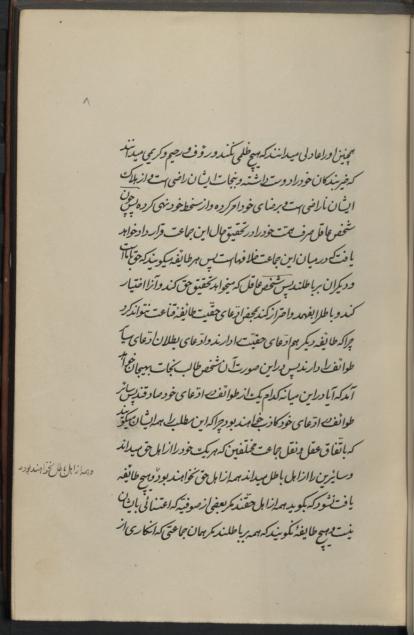 ۸
همچنین او را عادلی میدانند که هیچ ظلمی نکند و رؤف و رحیم و کریمی میدانند
که خیر بندگان خود را دوست داشته و بنجات ایشان راضی است و از هلاک
ایشان ناراضی است و برضای خود امر کرده و از سخط خود نهی کرده و چون
شخص عاقل صرف همت خود را در تحقیق حال این جماعت قرار داد خواهد
یافت که در میان این جماعت خلافهاست پس هر طایفه میگویند که حق با ماست
و دیگران بر باطلند پس شخص عاقل که میخواهد تحقیق حق کند و آنرا اختیار
کند و باطل را بفهمد و احتراز کند بمحض ادعای حقیت طایفه قناعت نتواند کرد
چرا که طایفه دیگر هم ادعای حقیت دارند و ادعای بطلان ادعای سایر
طوائف را دارند پس در این صورت آن شخص طالب نجات بهیجان خواهد
آمد که آیا در این میانه کدام یک از طوائف در ادعای خود صادقند پس سایر
طوائف در ادعای خود کاذب خواهند بود چرا که این مطلب را همه ایشان میگویند
که باتفاق عقل و نقل جماعت مختلفین که هر یک خود را از اهل حق میداند
و سایرین را از اهل باطل میداند همه از اهل حق نخواهند بود و هیچ طایفه
یافت نشود که بگوید همه از اهل حقند مگر بعضی از صوفیه که اعتنائی بایشان
نیست و هیچ طایفهٔ نگویند که همه بر باطلند مگر همان جماعتی که انکاری از
و همه از اهل باطل نخواهند بود